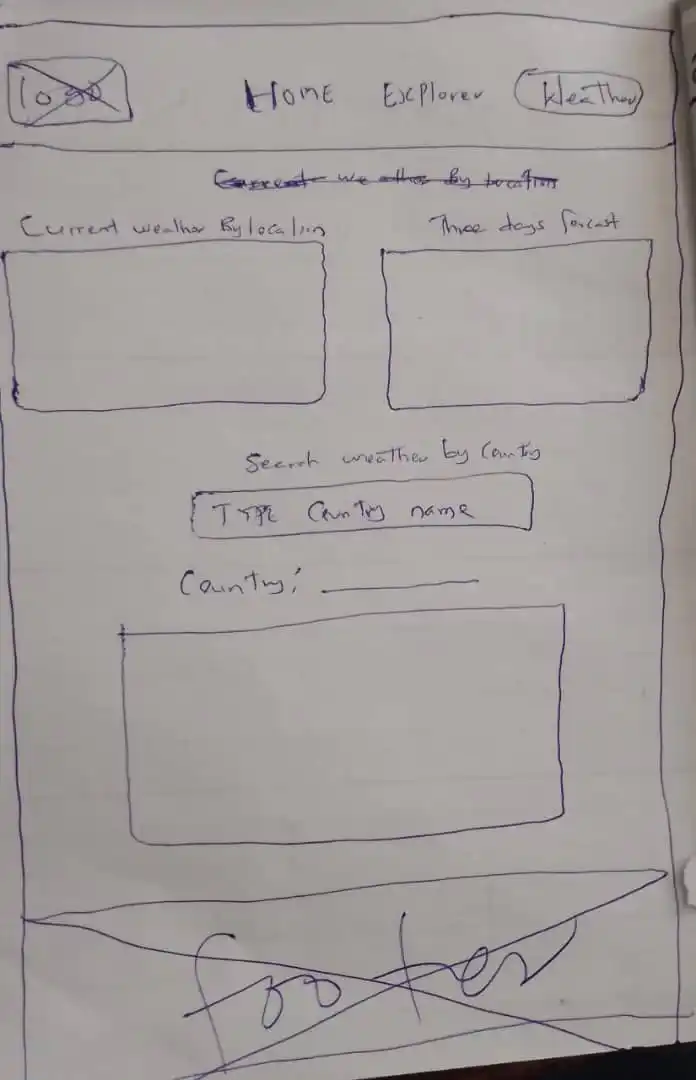 logo Home Explorer Weather
Current weather By location
Current weather By location
Three days forcast
Search weather by Country
TYPE Country name
Country:
footer